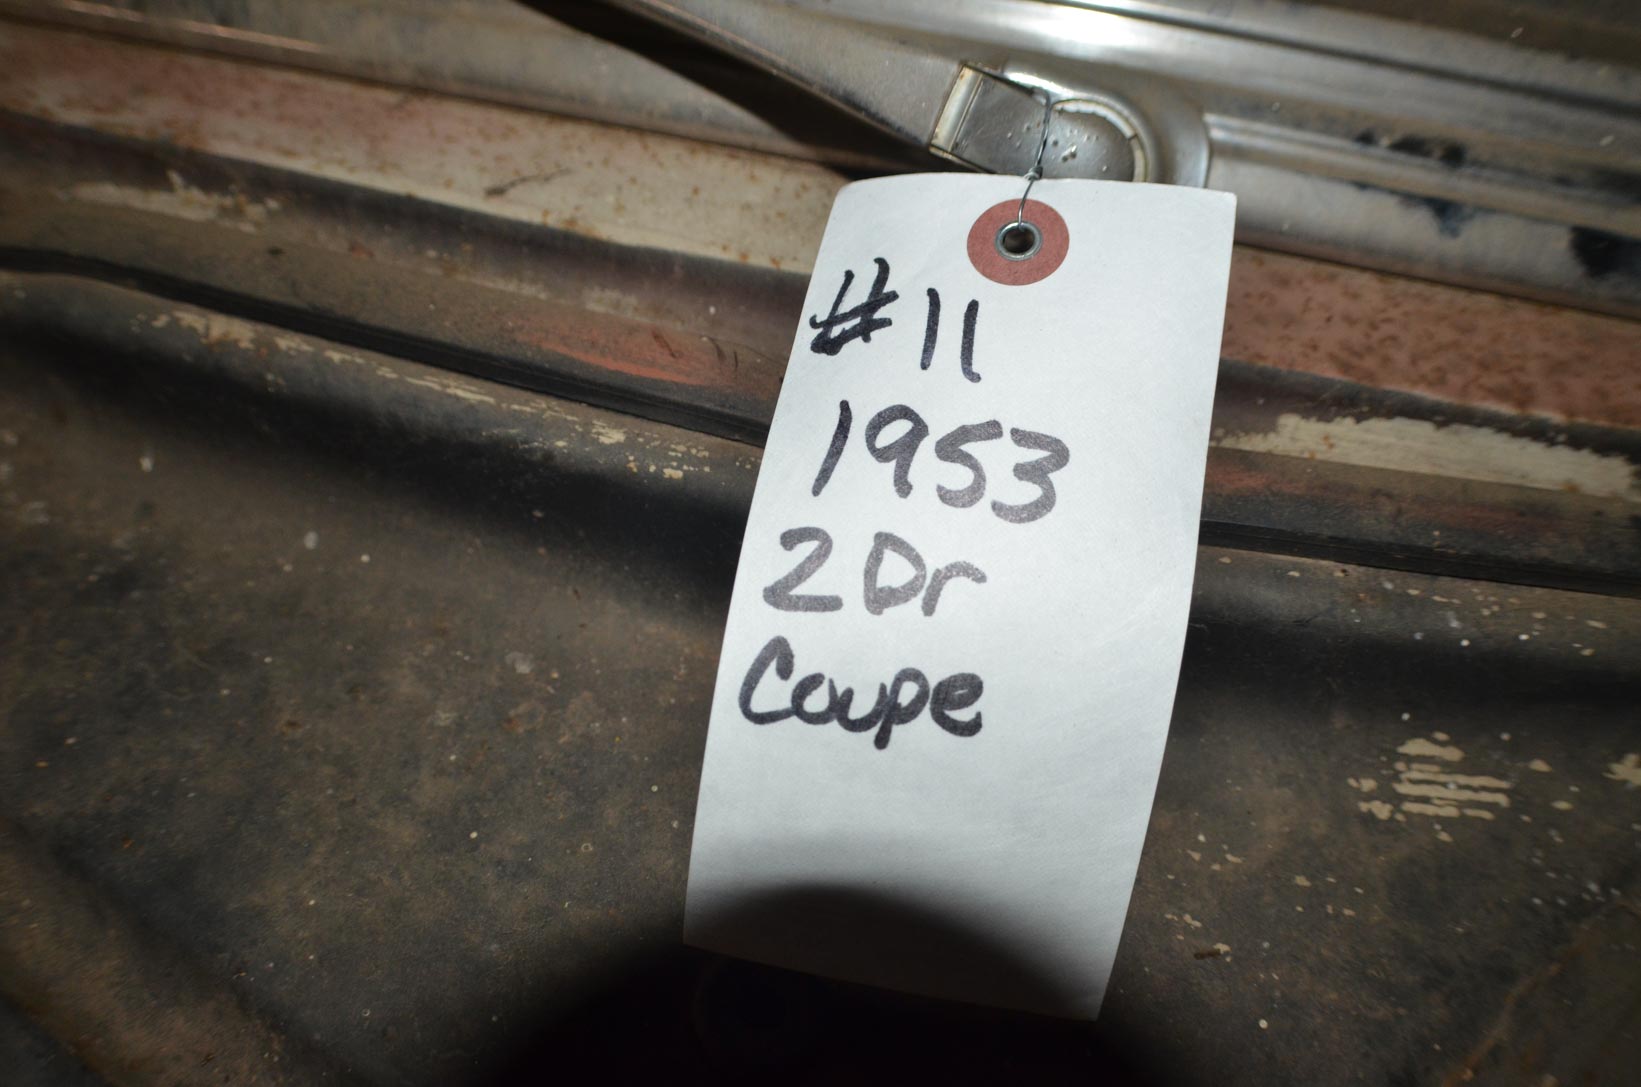 #11
1953
2 Dr
Coupe